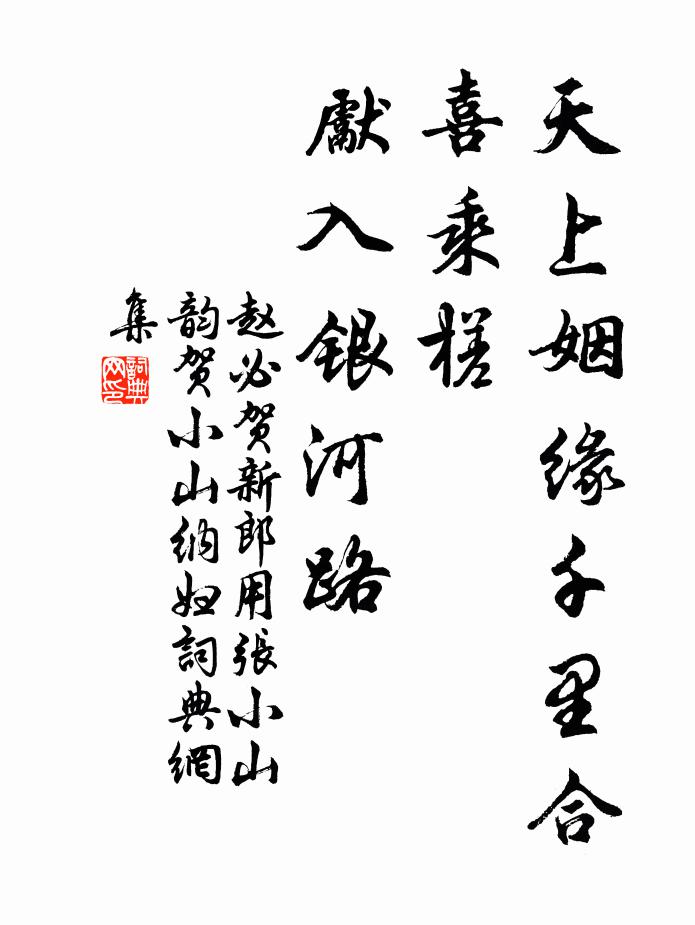 天上姻缘千里合
喜乘槎
獻入銀河路
赵必贺新郎用張小山
韵贺小山纳妞詞典網
集
詞典網印